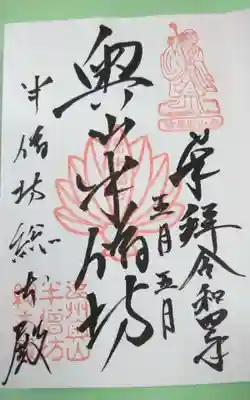 奉拝令和四年
五月五日
奥山半僧坊
半僧坊総本殿
遠州奥山
半僧坊